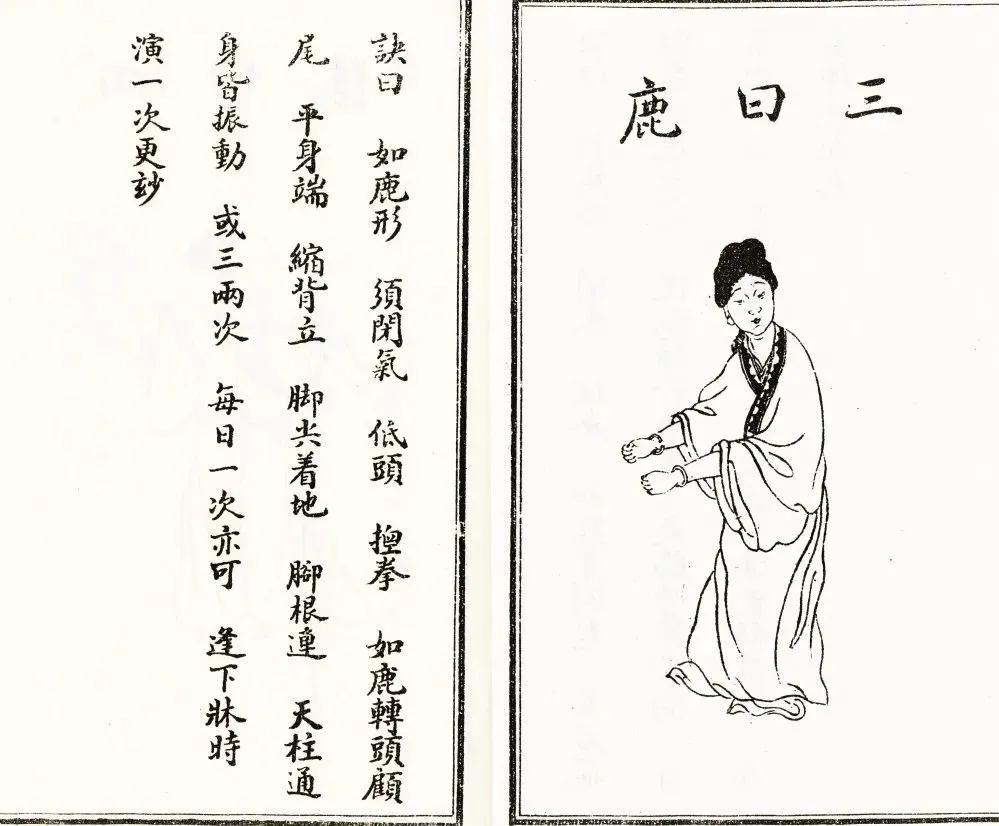 三曰鹿
訣曰 如鹿形 須閉氣 低頭 揑拳 如鹿轉頭顧
尾 平身端 縮背立 脚尖着地 腳根連 天柱通
身皆振動 或三兩次 每日一次亦可 逢下牀時
演一次更玅